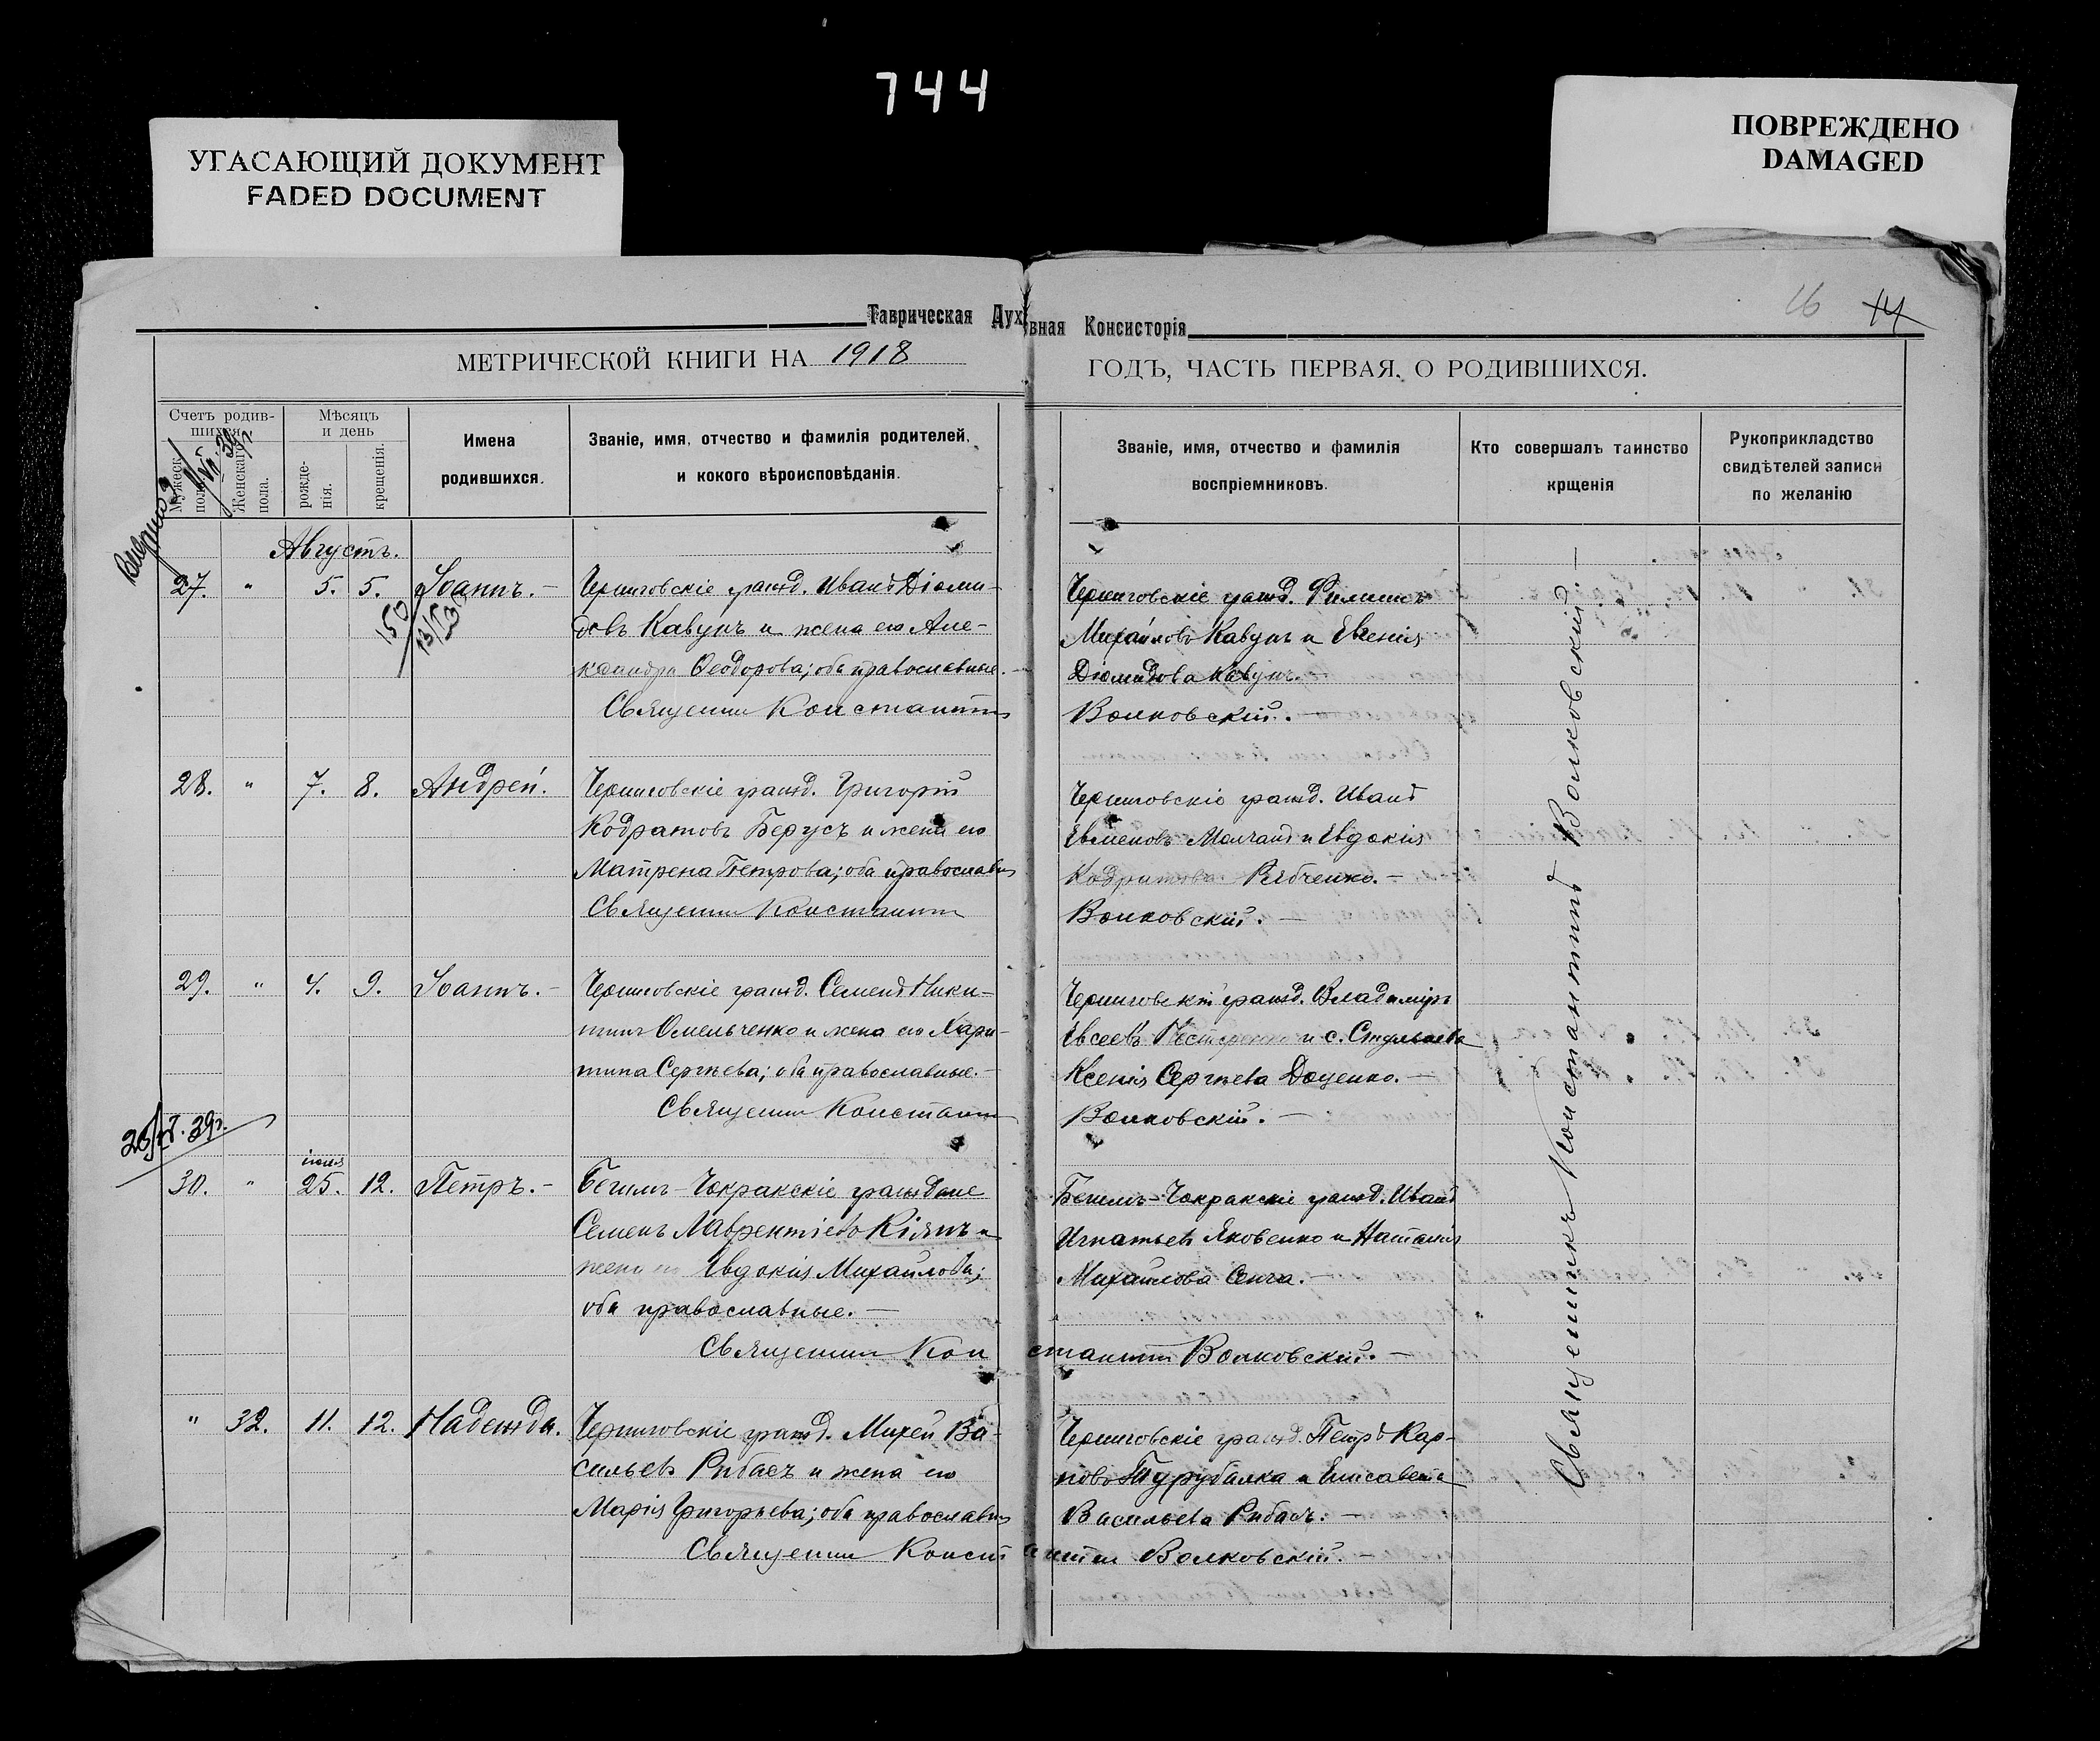 744
УГАСАЮЩИЙ ДОКУМЕНТ
FADED DOCUMENT
ПОВРЕЖДЕНО
DAMAGED
Таврическая Духвная Консисторія
16 14
МЕТРИЧЕСКОЙ КНИГИ НА 1918 ГОДЪ, ЧАСТЬ ПЕРВАЯ, О РОДИВШИХСЯ.
Счетъ родив-
шихся.
Мужеск.
пола.
Женскаго
пола.
Мѣсяцъ
и день
рожде-
нія.
крещенія.
Имена
родившихся.
Званіе, имя, отчество и фамилія родителей,
и кокого вѣроисповѣданія.
Званіе, имя, отчество и фамилія
воспріемниковъ.
Кто совершалъ таинство
крщенія
Рукоприкладство
свидѣтелей записи
по желанію
Августъ.
27. " 5. 5. Іоаннъ. –
Черниговскіе гражд. Иванъ Діоми-
довъ Кавунъ и жена его Але-
ксандра Ѳеодорова; оба православные. –
Священник Константин
Черниговскіе гражд. Филиппъ
Михайловъ Кавунъ и Евгенія
Діомидова Кавунъ.
Волковскій. –
28. " 7. 8. Андрей.
Черниговскіе гражд. Григорій
Кодратовъ Бергусъ и жена его
Матрена Петрова; оба православн
Священник Константин
Черниговскіе гражд. Иванъ
Евменовъ Молчанъ и Евдокія
Кодратова Рябченко. –
Волковскій. –
29. " 4. 9. Іоаннъ. –
Черниговскіе гражд. Семенъ Ники-
тинъ Омельченко и жена его Хари-
тина Сергѣева; оба православные. –
Священник Константин
Черниговскій гражд. Владиміръ
Евсеевъ и с.
Ксенія Сергѣева Доценко. –
Волковскій. –
30. " іюля 25. 12. Петръ. –
Бегимъ-Чокракскіе граждане
Семенъ Лаврентіевъ Кіянъ и
жена его Евдокія Михайлова;
оба православные. –
Священник Константин Волковскій. –
Бегимъ-Чокракскіе гражд. Иванъ
Игнатьевъ Яковенко и Наталія
Михайлова Сенча. –
" 32. 11. 12. Надежда.
Черниговскіе гражд. Михей Ва-
сильевъ Рибасъ и жена его
Марія Григорьева; оба православн
Священник Константин Волковскій. –
Черниговскіе гражд. Петръ Кар-
повъ Турубалка и Елисавета
Васильева Рибасъ. –
Священникъ Константинъ Волковскій. –